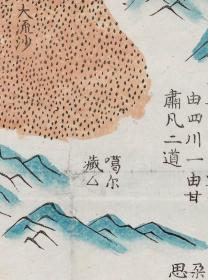 由四川一由甘
肅凡二道
噶尔
藏乙
大流沙
朶
思